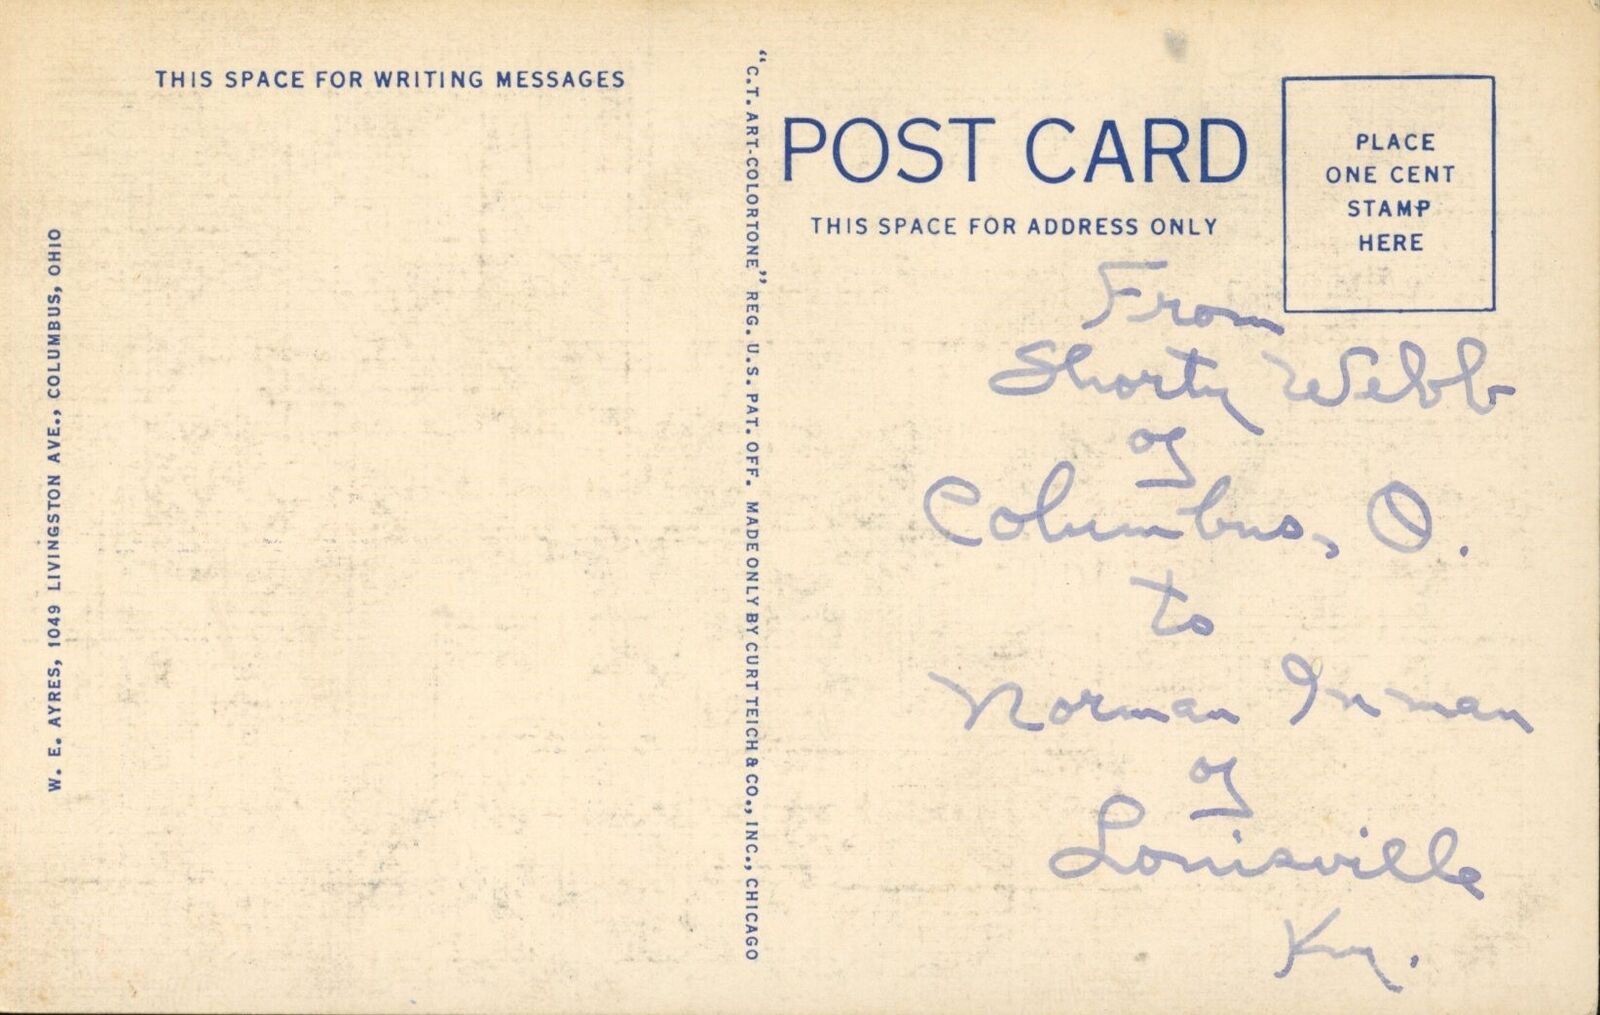 THIS SPACE FOR WRITING MESSAGES
W. E. AYRES, 1049 LIVINGSTON AVE., COLUMBUS, OHIO
"C.T. ART-COLORTONE" REG. U.S. PAT. OFF. MADE ONLY BY CURT TEICH & CO., INC., CHICAGO
POST CARD
THIS SPACE FOR ADDRESS ONLY
PLACE
ONE CENT
STAMP
HERE
From
Shorty Webb
of
Columbus, O.
to
Norman Inman
of
Louisville
Ky.